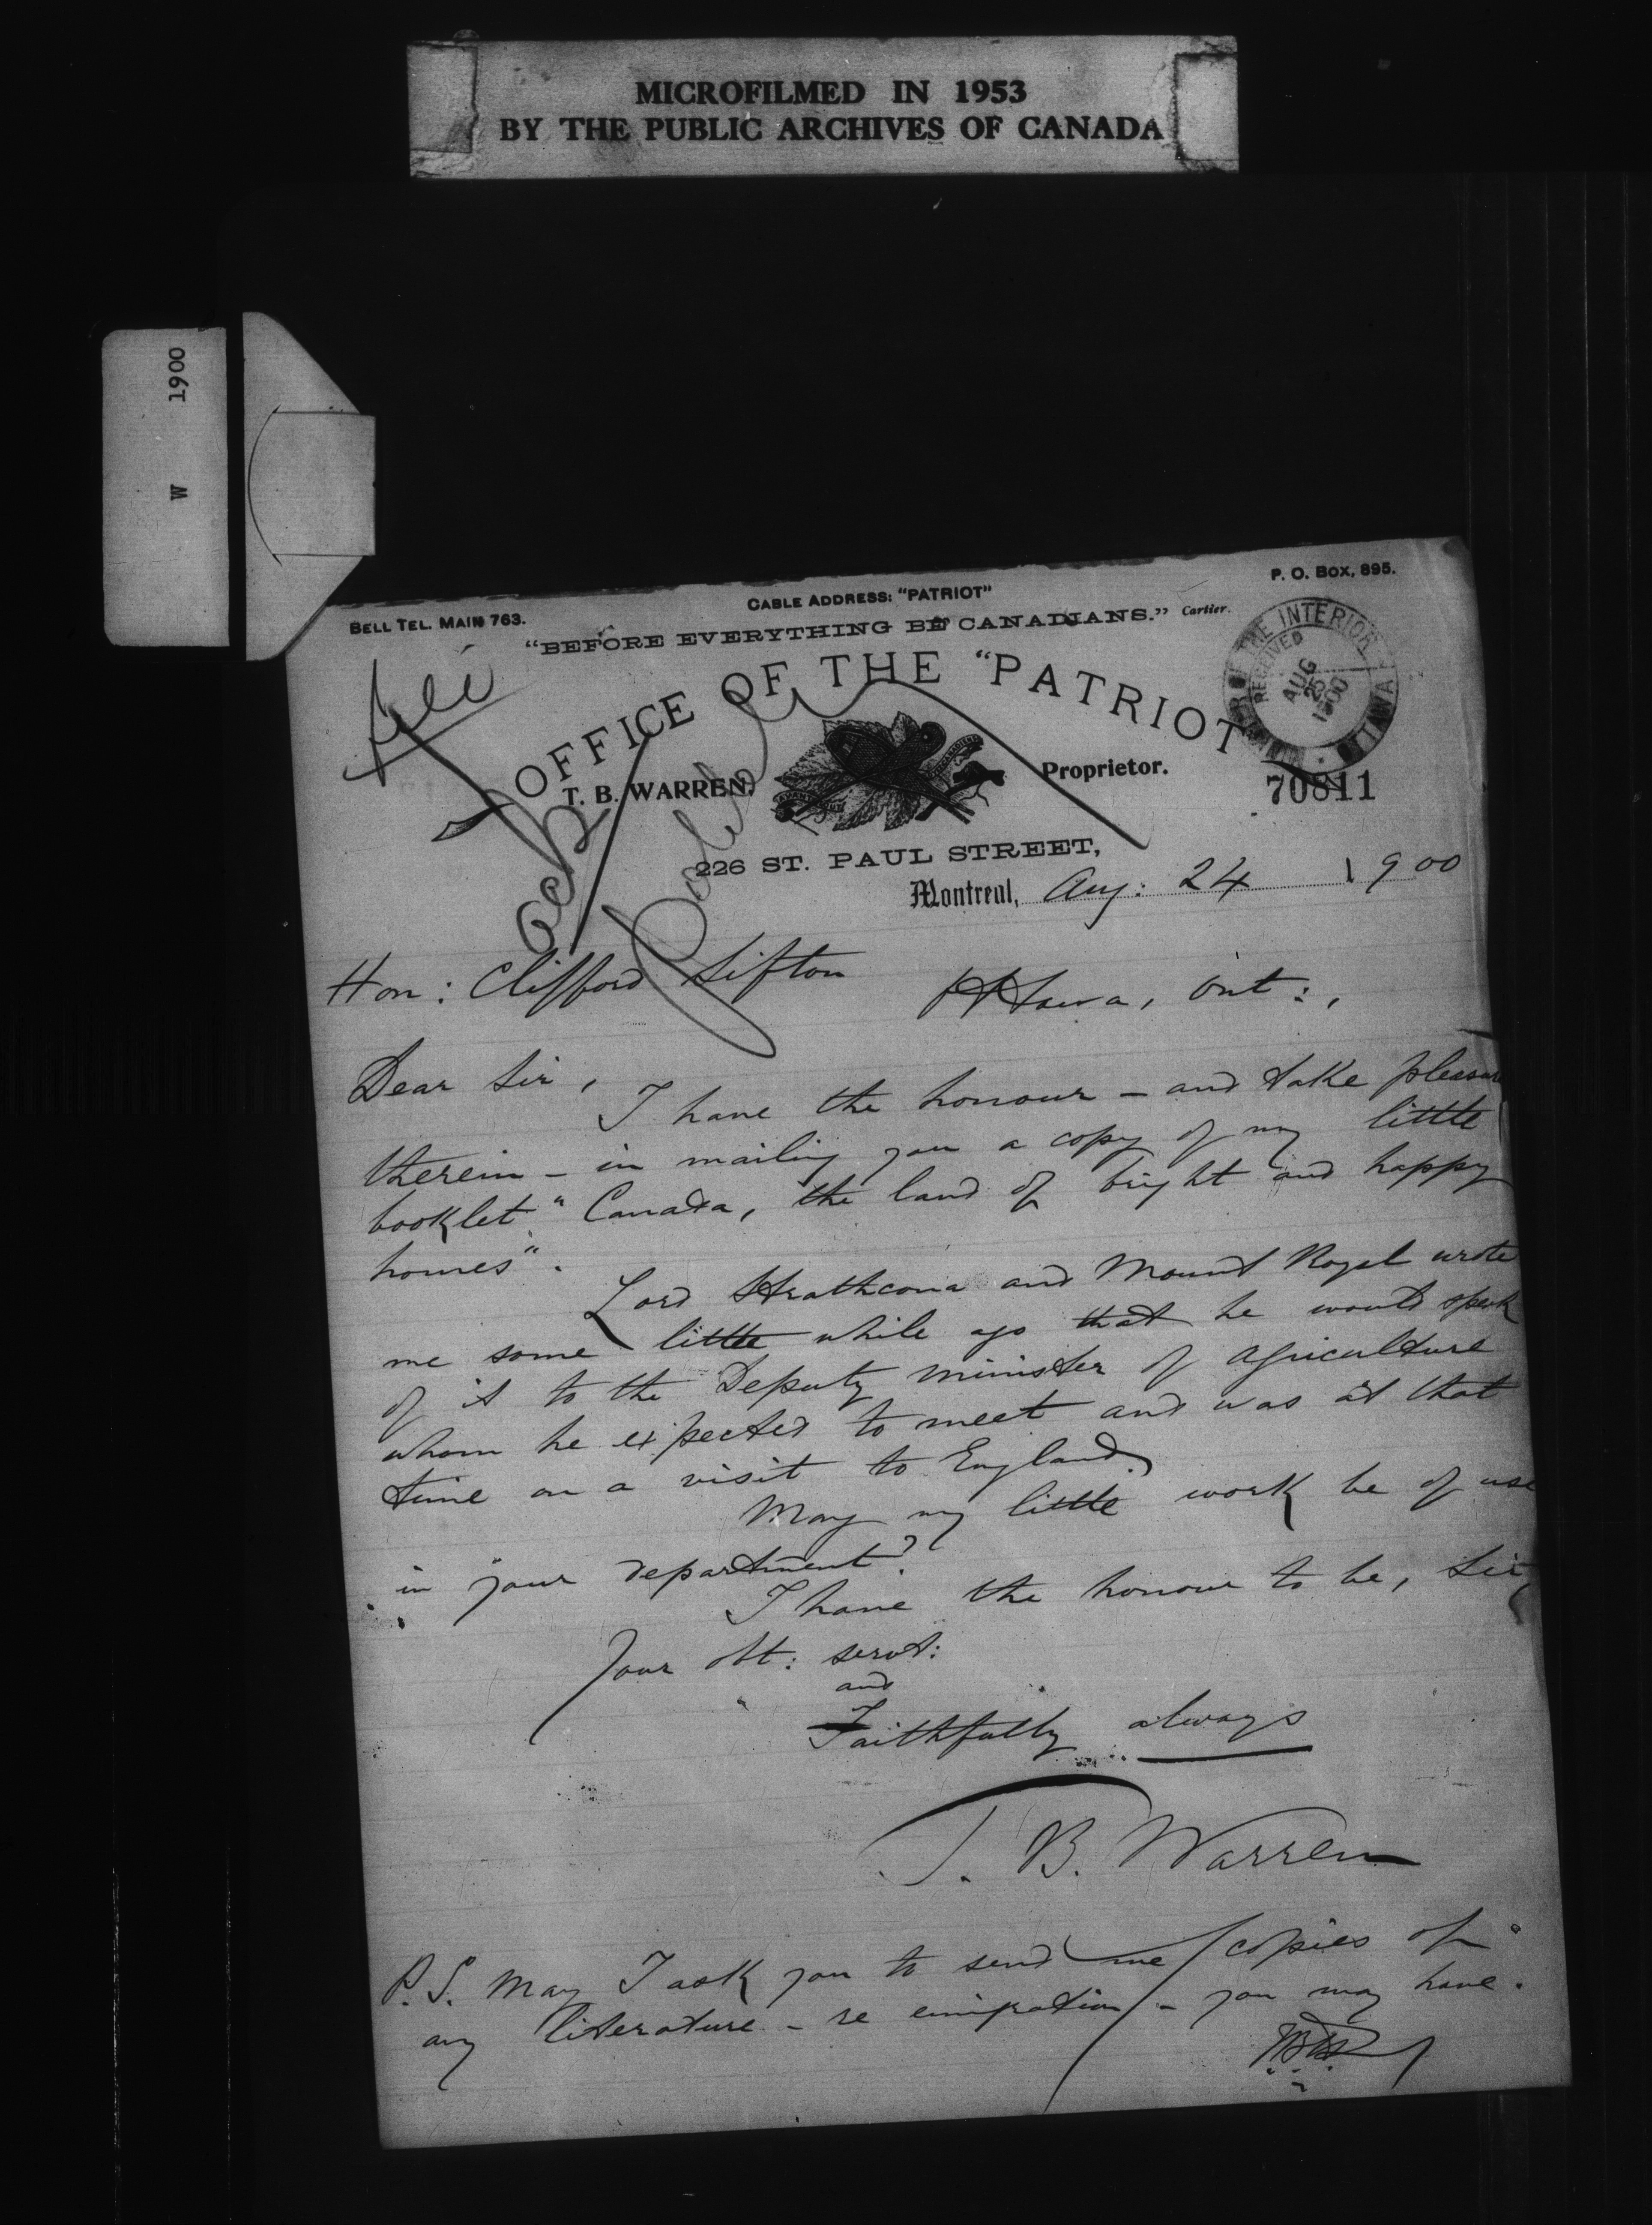 MICROFILMED IN 1953
BY THE PUBLIC ARCHIVES OF CANADA
W 1900
BELL TEL. MAIN 763.
CABLE ADDRESS: "PATRIOT"
P. O. BOX, 895.
"BEFORE EVERYTHING BE CANADIANS." Cartier.
OFFICE OF THE "PATRIOT"
T. B. WARREN, Proprietor.
THE INTERIOR
RECEIVED
AUG
25
1900
OTTAWA
70811
226 ST. PAUL STREET,
Montreal, Aug: 24 1900
Hon: Clifford Sifton
Ottawa, Ont:,
Dear Sir,
I have the honour - and take pleasure
therein - in mailing you a copy of my little
booklet "Canada, the land of bright and happy
homes".
Lord Strathcona and Mount Royal wrote
me some little while ago that he would speak
of it to the Deputy minister of Agriculture
whom he expected to meet and was at that
time on a visit to England.
May my little work be of use
in your department?
I have the honour to be, Sir,
Your obt: servt:
and
" Faithfully always
T. B. Warren
P.S. May I ask you to send me copies of
any literature - re emigration - you may have.
TBW